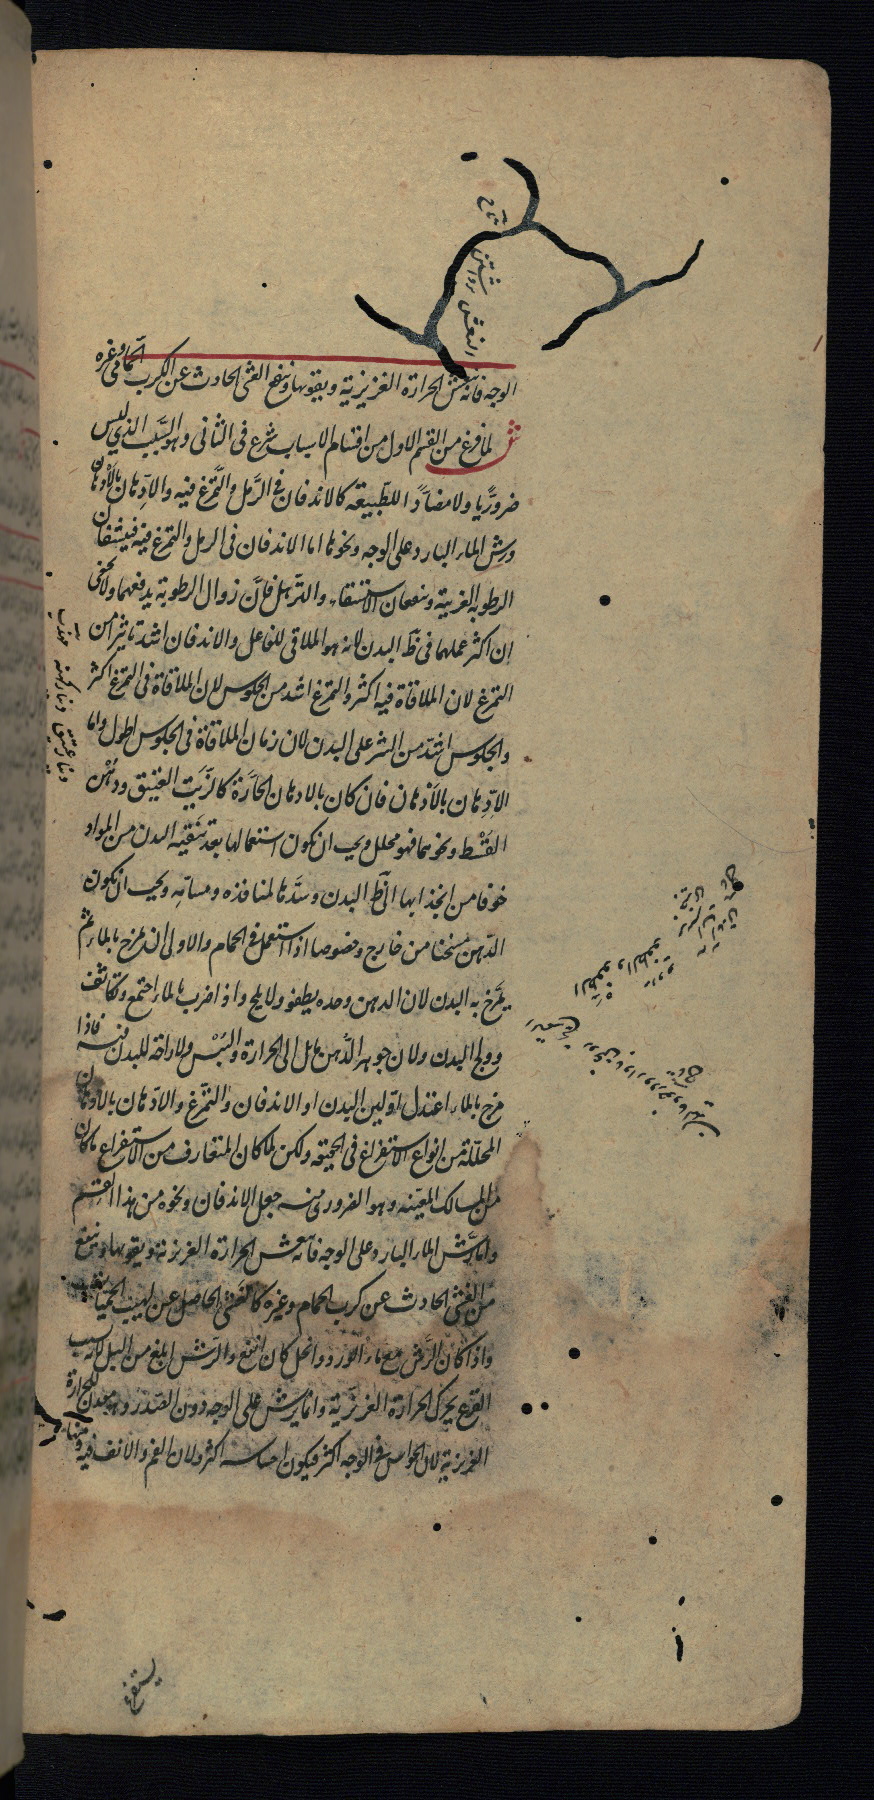 الوجه فانه ينعش الحرارة الغريزية ويقويها وينفع الغشى الحادث عن الكرب الحمامى وغيره
ش لما فرغ من القسم الاول من اقسام الاسباب شرع فى الثانى وهو السبب الذى ليس
ضروريا ولا مضادا للطبيعة كالاندفان فى الرمل والتمرغ فيه والادهان بالادهان
ورش الماء البارد على الوجه ونحوها اما الاندفان فى الرمل والتمرغ فيه فينشفان
الرطوبه الغريبة وينفعان الاستسقاء والترهل فان زوال الرطوبة يدفعهما ولا يخفى
ان اكثر عملهما فى ظ البدن لانه هو الملاقى للفاعل والاندفان اشد تاثيرا من
التمرغ لان الملاقاة فيه اكثر والتمرغ اشد من الجلوس لان الملاقاة فى التمرغ اكثر
والجلوس اشد من النثر على البدن لان زمان الملاقاة فى الجلوس اطول واما
الادهان بالادهان فان كان بالادهان الحارة كالزيت العتيق ودهن
القسط ونحوهما فهو محلل ويجب ان يكون استعمالها بعد تنقيه البدن من المواد
خوفا من انجذابها الى ظ البدن وسدها لمنافذه ومسامه ويجب ان يكون
الدهن مسخنا من خارج وخصوصا اذا استعمل فى الحمام والاولى ان يمزج بالماء ثم
يمرخ به البدن لان الدهن وحده يطفو ولا يلج واذا ضرب بالماء اجتمع وتكاثف
وولج البدن ولان جوهر الدهن مايل الى الحرارة واليبس ولا راحة للبدن فيه فاذا
مزج بالماء اعتدل لين البدن والاندفان والتمرغ والادهان بالادهان
المحللة من انواع الاستفراغ فى الحقيقه ولكن لما كان المتعارف من الاستفراغ ما كان
من المسالك المعينه وهو الضرورى منه جعل الاندفان ونحوه من هذا القسم
واما رش الماء البارد على الوجه فانه ينعش الحرارة الغريزية ويقويها وينفع
من الغشى الحادث عن كرب الحمام وغيره كالغشى الحاصل عن لهيب الحميات
واذا كان الرش مع ماء الورد والخل كان انفع والرش ابلغ من البل لانه بسبب
القرع يحرك الحرارة الغريزية وانما يرش على الوجه دون الصدر وهو معدن الحرارة
الغريزية لان الحواس فى الوجه اكثر فيكون احساسه اكثر ولان الفم والانف فيه ومنهما